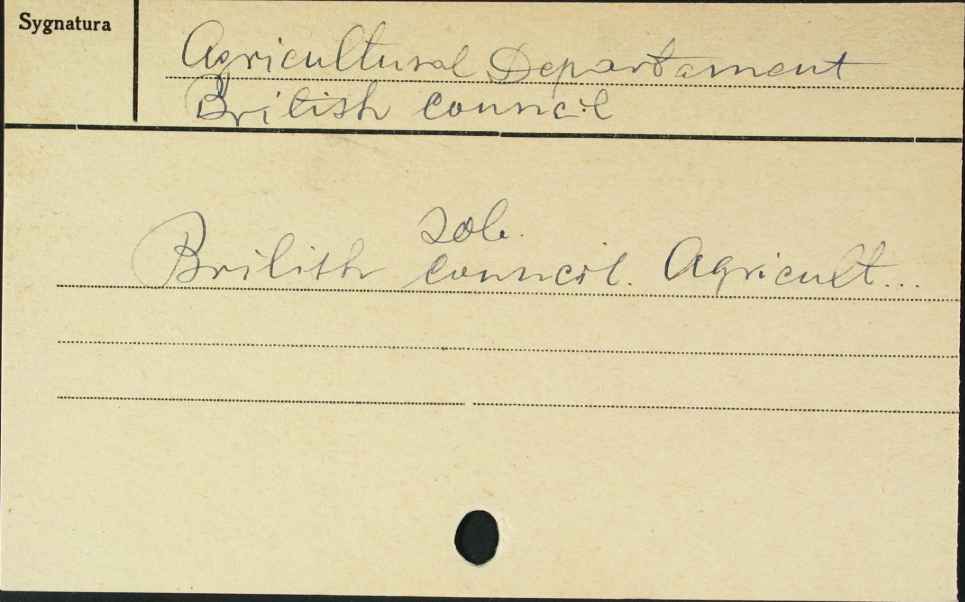 Sygnatura
Agricultural Departament
British Council
zob.
British Council. Agricult...